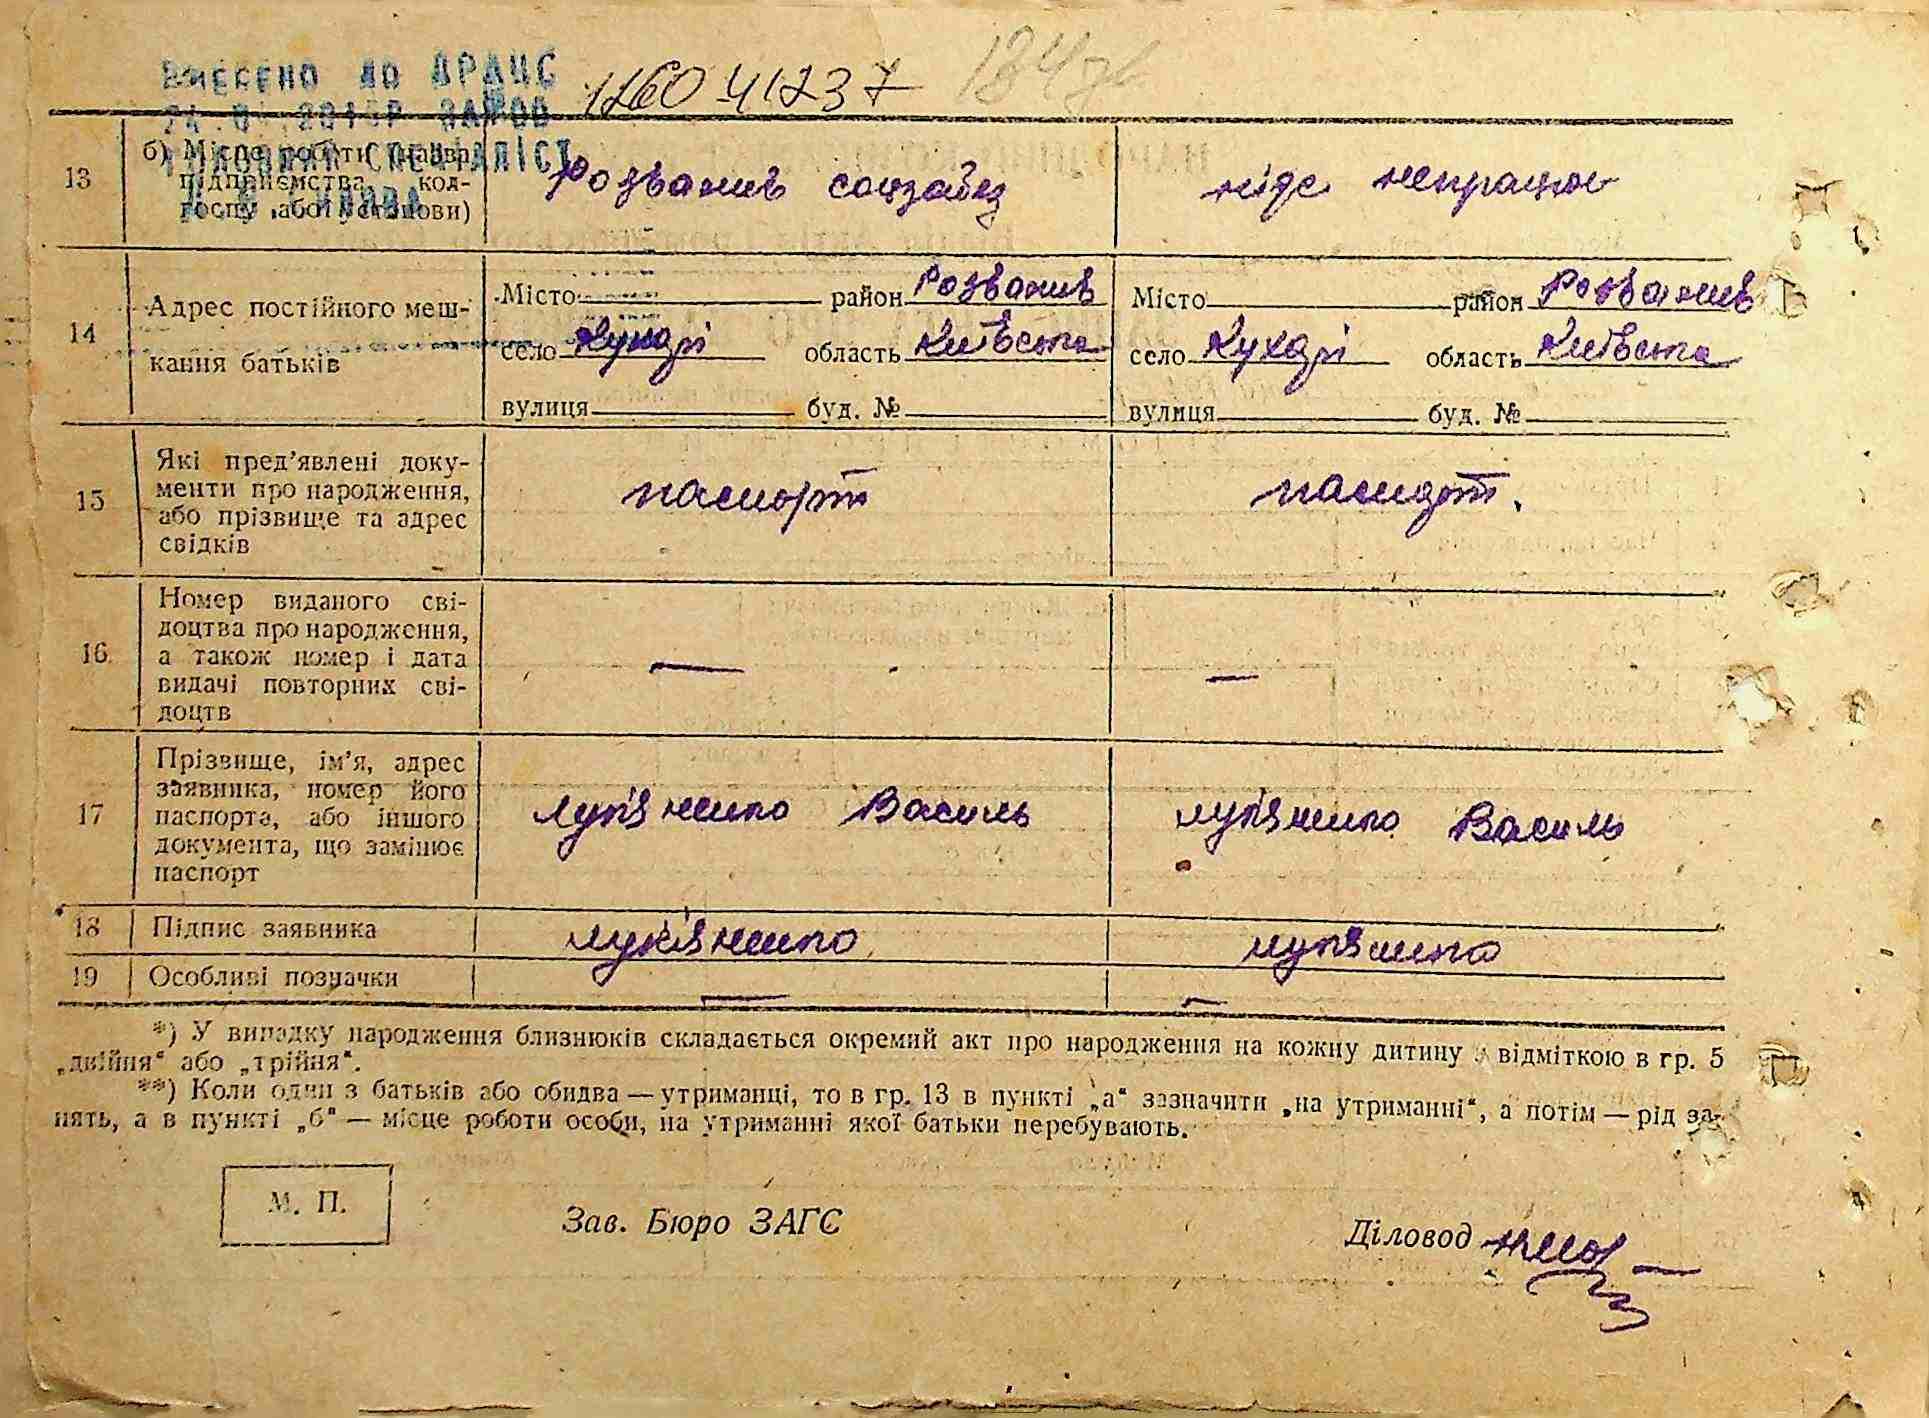 ВНЕСЕНО ДО ДРАЦС
176041237
ГОЛОВНИЙ СПЕЦІАЛІСТ
13 б) Місце роботи (назва підприємства, колгоспу або установи) Розважив нідє непрацює
14 Адрес постійного меш-
кання батьків
Місто район Розважив Місто район Розважив
село Кухарі область Київська село Кухарі область Київська
вулиця буд. № вулиця буд. №
15 Які пред’явлені доку-
менти про народження,
або прізвище та адрес
свідків
паспорт паспорт.
16 Номер виданого сві-
доцтва про народження,
а також номер і дата
видачі повторних сві-
доцтв
— —
17 Прізвище, ім’я, адрес
заявника, номер його
паспорта, або іншого
документа, що замінює
паспорт
Лук'яненко Василь Лук'яненко Василь
18 Підпис заявника Лук'яненко Лук'яненко
19 Особливі позначки — —
*) У випадку народження близнюків складається окремий акт про народження на кожну дитину з відміткою в гр. 5
„двійня“ або „трійня“.
**) Коли один з батьків або обидва — утриманці, то в гр. 13 в пункті „а“ зазначити „на утриманні“, а потім — рід за-
нять, а в пункті „б“ — місце роботи особи, на утриманні якої батьки перебувають.
М. П.
Зав. Бюро ЗАГС
Діловод